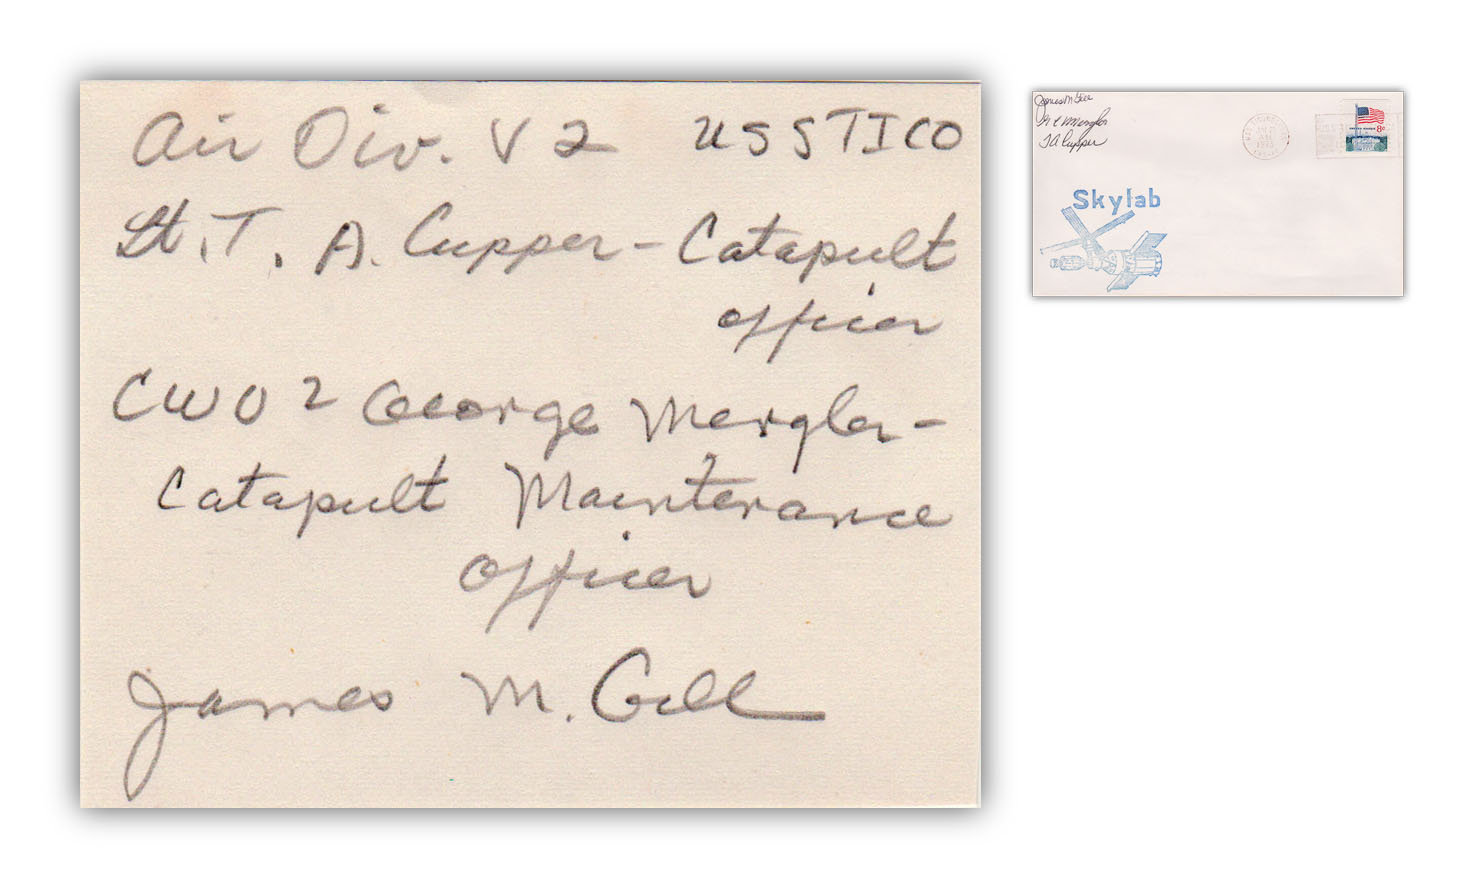 Air Div. V 2 USS TICO
Lt. T. A. Cupper - Catapult
officer
CWO 2 George Mergler -
Catapult Maintenance
officer
James M. Gill
James M Gill
G E Mergler
TA Cupper
8c
Skylab